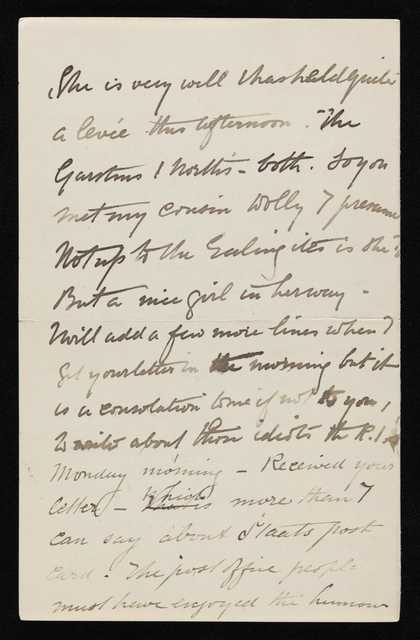 She is very well & has held quite
a levée this afternoon. The
& North's - both. So you
met my cousin Wolly I presume
Not up to the Ealingites is she?
But a nice girl in her way -
Will add a few more lines when I
get your letter in the morning but it
is a consolation to me if not to you,
to write about those idiots the R.I.
Monday morning - Received your
letter - which is more than I
can say about Staats post
card. The post office people
must have enjoyed the humour